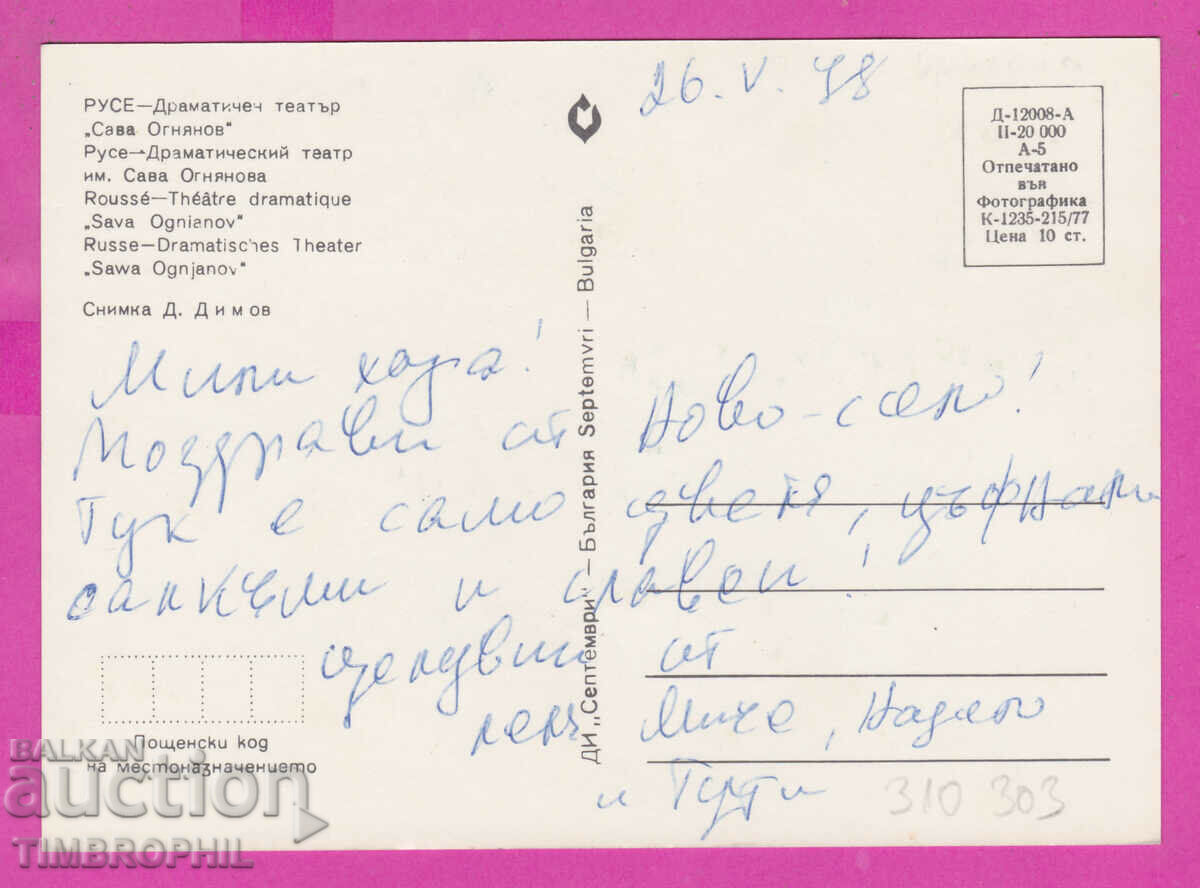 26. V. 78
РУСЕ—Драматичен театър
„Сава Огнянов"
Русе—Драматический театр
им. Сава Огнянова
Roussé—Théâtre dramatique
„Sava Ognianov"
Russe—Dramatisches Theater
„Sawa Ognjanov"
Снимка Д. Димов
Д-12008-А
II-20 000
А-5
Отпечатано
във
Фотографика
К-1235-215/77
Цена 10 ст.
ДИ „Септември" — България Septemvri — Bulgaria
Мили хора!
Поздрави от Ново-село!
Тук е само цветя, цъфнали
и славеи!
целувки от
леля Миче, Надето
и Тути
310 303
Пощенски код
на местоназначението
BALKAN
auction
TIMBROPHIL